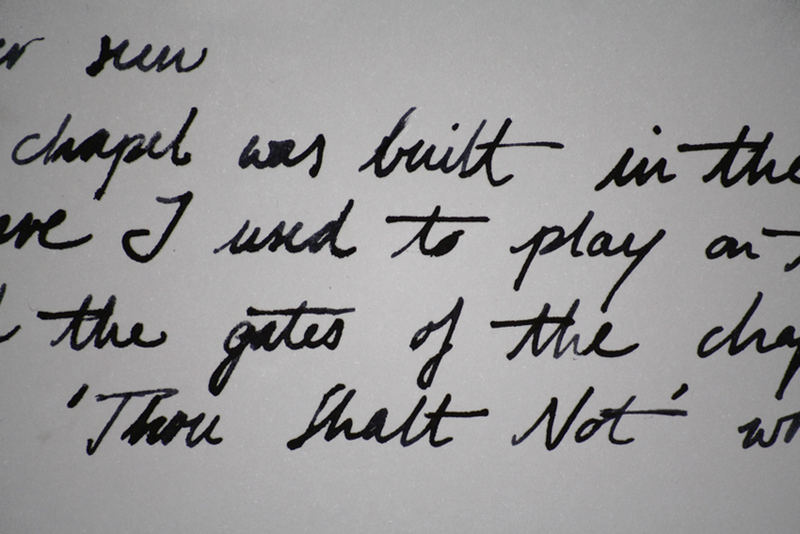 seen
chapel was built in the
I used to play on
the gates of the
'Thou Shalt Not'